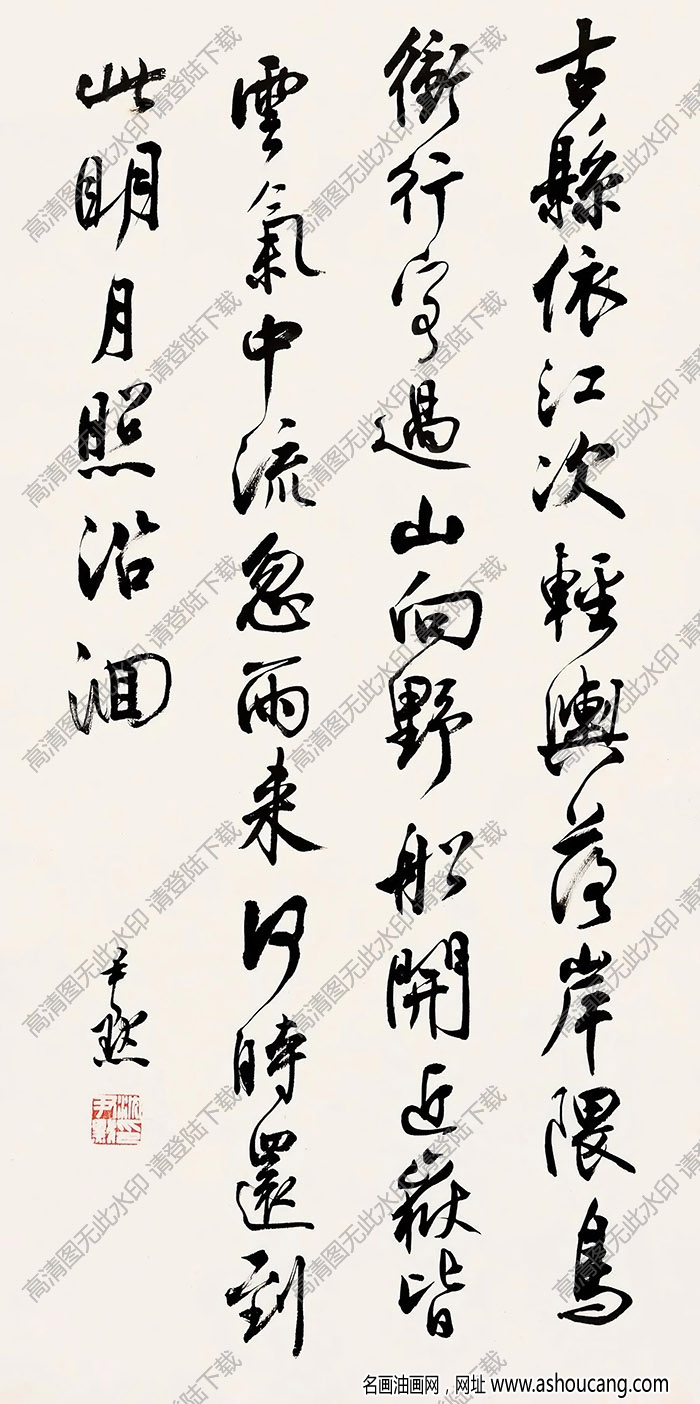 古縣依江次輕輿落岸隈鳥
衝行客過山向野船開近嶽皆
雲氣中流忽雨來何時還到
此明月照沿洄
尹默
高清图无此水印 请登陆下载
名画油画网，网址 www.ashoucang.com